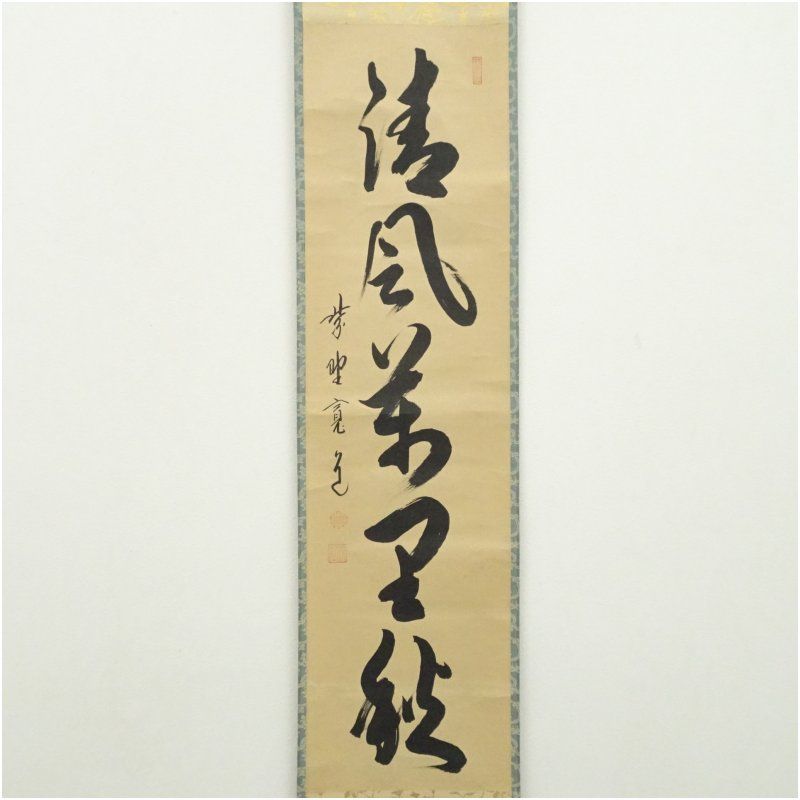 清風萬里秋
紫野寛道